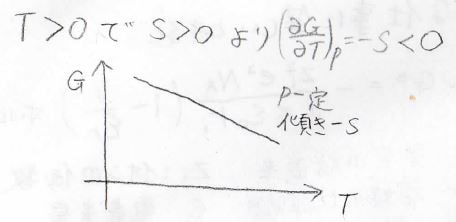 T>0でS>0より(∂G/∂T)p=-S<0
G
P一定
傾き-S
T